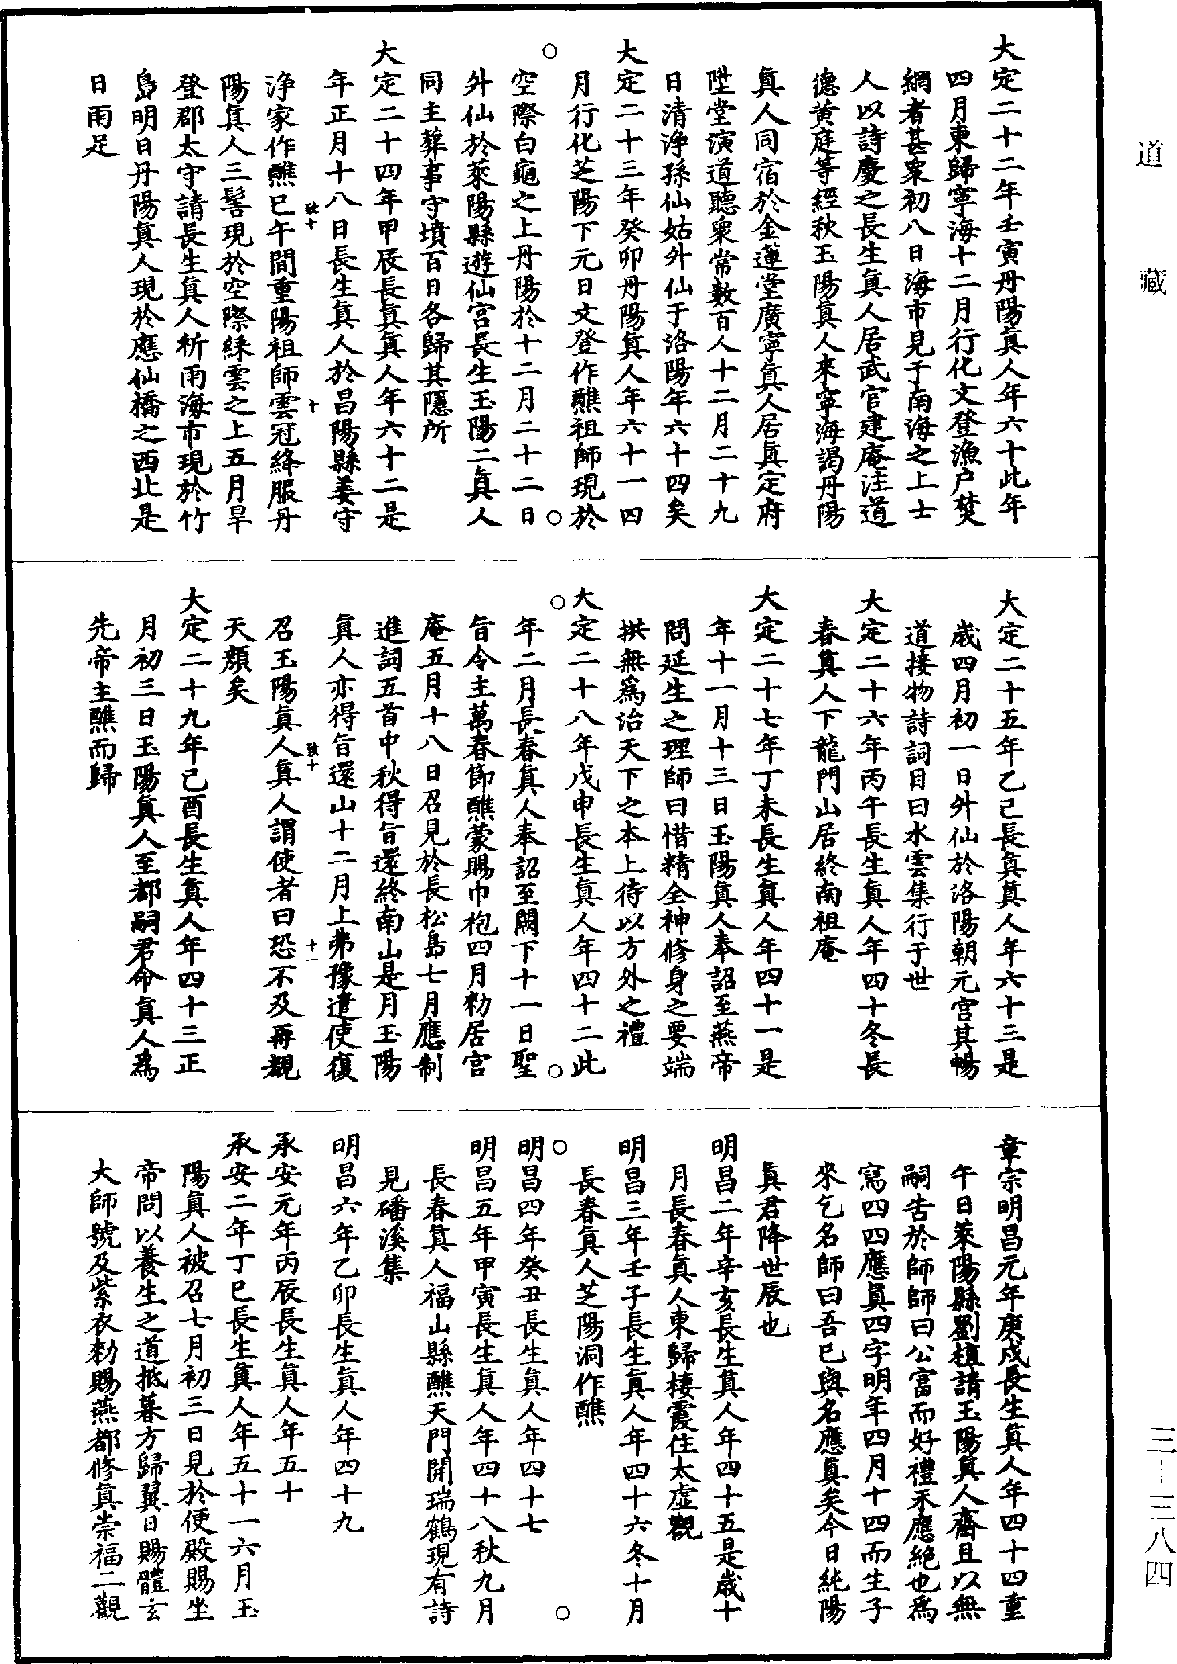 道藏
大定二十二年壬寅丹陽真人年六十此年
四月東歸寧海十二月行化文登漁户焚
網者甚衆初八日海市見于南海之上士
人以詩慶之長生真人居武官建庵注道
德黄庭等經秋玉陽真人來寧海謁丹陽
真人同宿於金蓮堂廣寧真人居真定府
陞堂演道聽衆常數百人十二月二十九
日清淨孫仙姑外仙于洛陽年六十四矣
大定二十三年癸卯丹陽真人年六十一四
月行化芝陽下元日文登作醮祖師現於
空際白龜之上丹陽於十二月二十二日
外仙於萊陽縣遊仙宮長生玉陽二真人
同主葬事守墳百日各歸其隱所
大定二十四年甲辰長真真人年六十二是
年正月十八日長生真人於昌陽縣姜守
淨家作醮巳午間重陽祖師雲冠絳服丹
陽真人三髻現於空際綵雲之上五月旱
登郡太守請長生真人祈雨海市現於竹
島明日丹陽真人現於應仙橋之西北是
日雨足
大定二十五年乙巳長真真人年六十三是
歲四月初一日外仙於洛陽朝元宮其暢
道接物詩詞目曰水雲集行于世
大定二十六年丙午長生真人年四十冬長
春真人下龍門山居終南祖庵
大定二十七年丁未長生真人年四十一是
年十一月十三日玉陽真人奉詔至燕帝
問延生之理師曰惜精全神修身之要端
拱無爲治天下之本上待以方外之禮
大定二十八年戊申長生真人年四十二此
年二月長春真人奉詔至闕下十一日聖
旨令主萬春節醮蒙賜巾袍四月勑居宮
庵五月十八日召見於長松島七月應制
進詞五首中秋得旨還終南山是月玉陽
真人亦得旨還山十二月上弗豫遣使復
召玉陽真人真人謂使者曰恐不及再覩
天顏矣
大定二十九年己酉長生真人年四十三正
月初三日玉陽真人至都嗣君命真人爲
先帝主醮而歸
章宗明昌元年庚戌長生真人年四十四重
午日萊陽縣劉植請玉陽真人齋且以無
嗣告於師師曰公富而好禮不應絶也爲
寫四四應真四字明年四月十四而生子
來乞名師曰吾已與名應真矣今日純陽
真君降世辰也
明昌二年辛亥長生真人年四十五是歲十
月長春真人東歸棲霞住太虛觀
明昌三年壬子長生真人年四十六冬十月
長春真人芝陽洞作醮
明昌四年癸丑長生真人年四十七
明昌五年甲寅長生真人年四十八秋九月
長春真人福山縣醮天門開瑞鶴現有詩
見磻溪集
明昌六年乙卯長生真人年四十九
承安元年丙辰長生真人年五十
承安二年丁巳長生真人年五十一六月玉
陽真人被召七月初三日見於便殿賜坐
帝問以養生之道抵暮方歸翼日賜體玄
大師號及紫衣勑賜燕都修真崇福二觀
三—三八四